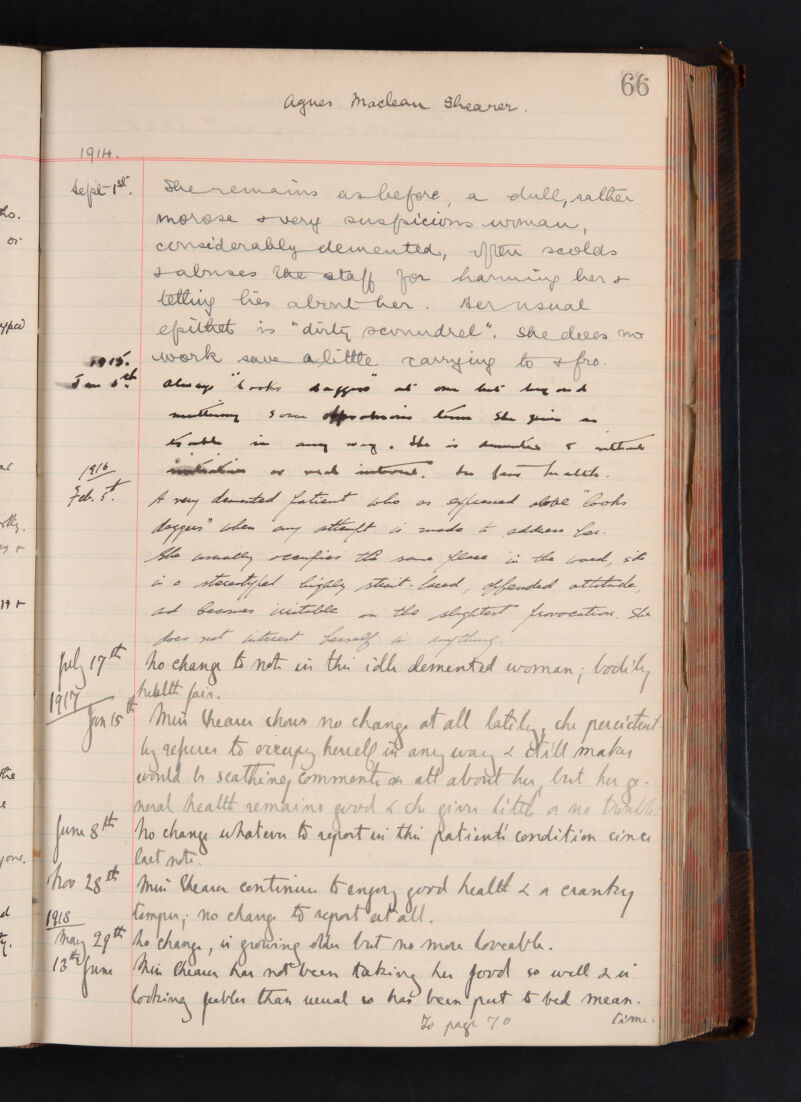 66
Agnes Maclean Shearer.
1914.
Sept 1st. She remains as before, a dull, rather
morose & very suspicious woman,
considerably demented, often scolds
& abuses the staff for harming her &
telling lies about her. Her usual
epithet is "dirty scoundrel". She does no
work save a little carrying to & fro.
1915.
Jan 5th. Always "looks daggers" at one but beyond
muttering some opprobrious term she gives no
trouble in any way. She is demented & without
initiative or real interest. In fair health.
1916
Feb. 5th. A very demented patient who as expressed above "looks
daggers" when any attempt is made to address her.
She usually occupies the same place in the ward, sits
in a stereotyped highly strait-laced, offended attitude,
and becomes irritable on the slightest provocation. She
does not interest herself in anything.
July 17th No change to note in this idle demented woman; bodily
health fair.
1917
Jan 15th Miss Shearer shows no change at all lately, she persistent-
ly refuses to occupy herself in any way & still makes
would be scathing comments on all about her, but her ge-
neral health remains good & she gives little or no trouble.
June 8th No change whatever to report in this patient's condition since
last note.
Nov 28th Miss Shearer continues to enjoy good health & a cranky
temper; no change to report at all.
1918
May 29th No change, is growing older but no more loveable.
13th June Miss Shearer has not been taking her food so well & is
looking feebler than usual so has been put to bed mean-
time.
To page 70